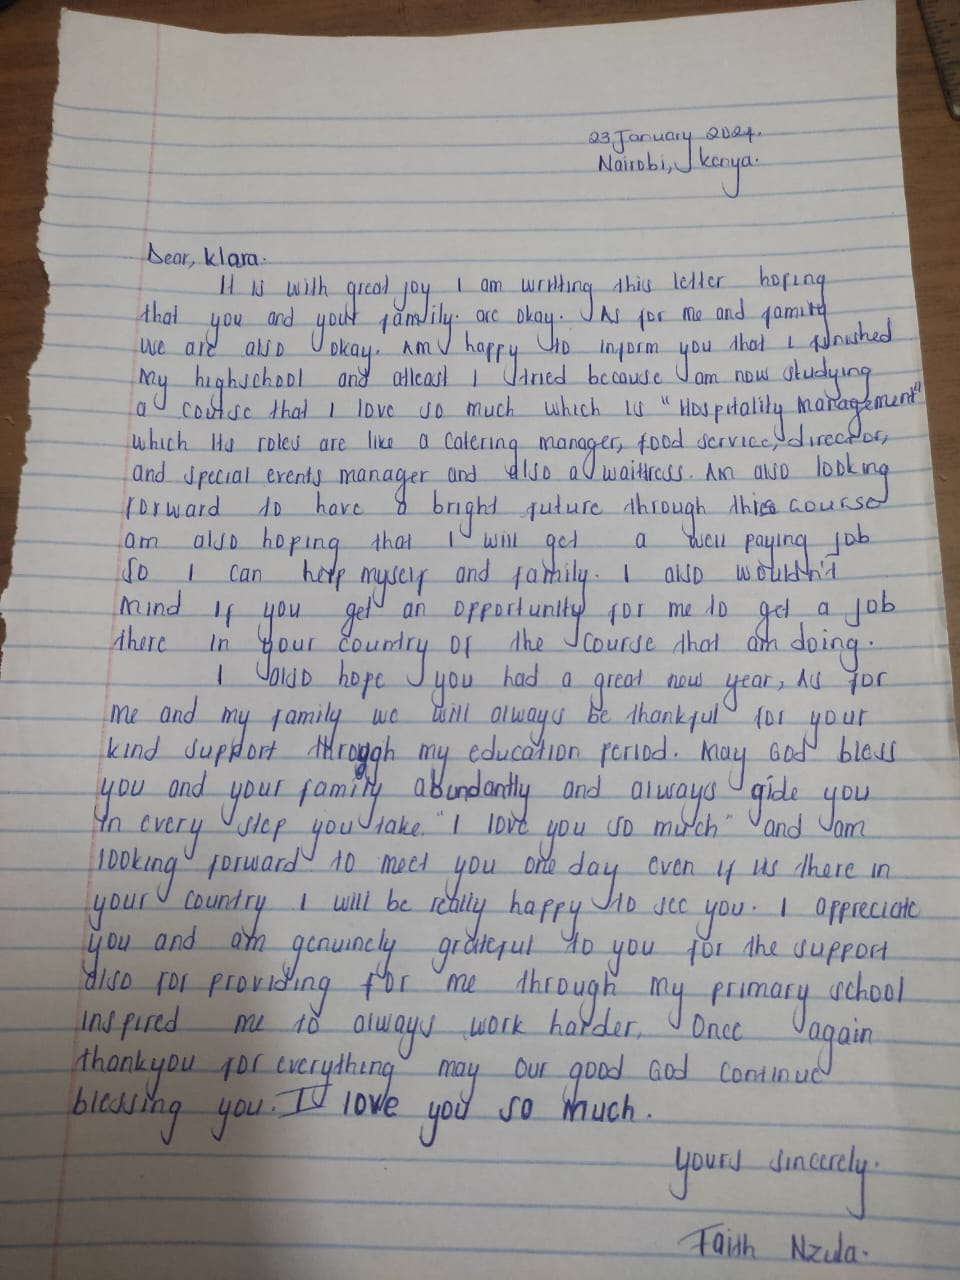 23 January 2024.
Nairobi, kenya.
Dear, Klara.
It is with great joy I am writting this letter hoping
that you and your family. are okay. As for me and family
we are also okay. Am happy to inform you that I finished
my highschool and atleast I tried because I am now studying
a course that I love so much which is "Hospitality management"
which its roles are like a catering manager, food service, director,
and special events manager and also a waitress. Am also looking
forward to have a bright future through this course
am also hoping that I will get a well paying job
so I can help myself and family. I also wouldn't
mind if you get an opportunity for me to get a job
there in your country of the course that am doing.
I also hope you had a great new year, As for
me and my family we will always be thankful for your
kind support through my education period. May God bless
you and your family abundantly and always gide you
in every step you take. "I love you so much" and am
looking forward to meet you one day even if its there in
your country I will be really happy to see you. I appreciate
you and am genuinely grateful to you for the support
also for providing for me through my primary school
inspired me to always work harder. Once again
thankyou for everything may our good God continue
blessing you. I love you so much.
Yours sincerely.
Faith Nzula.